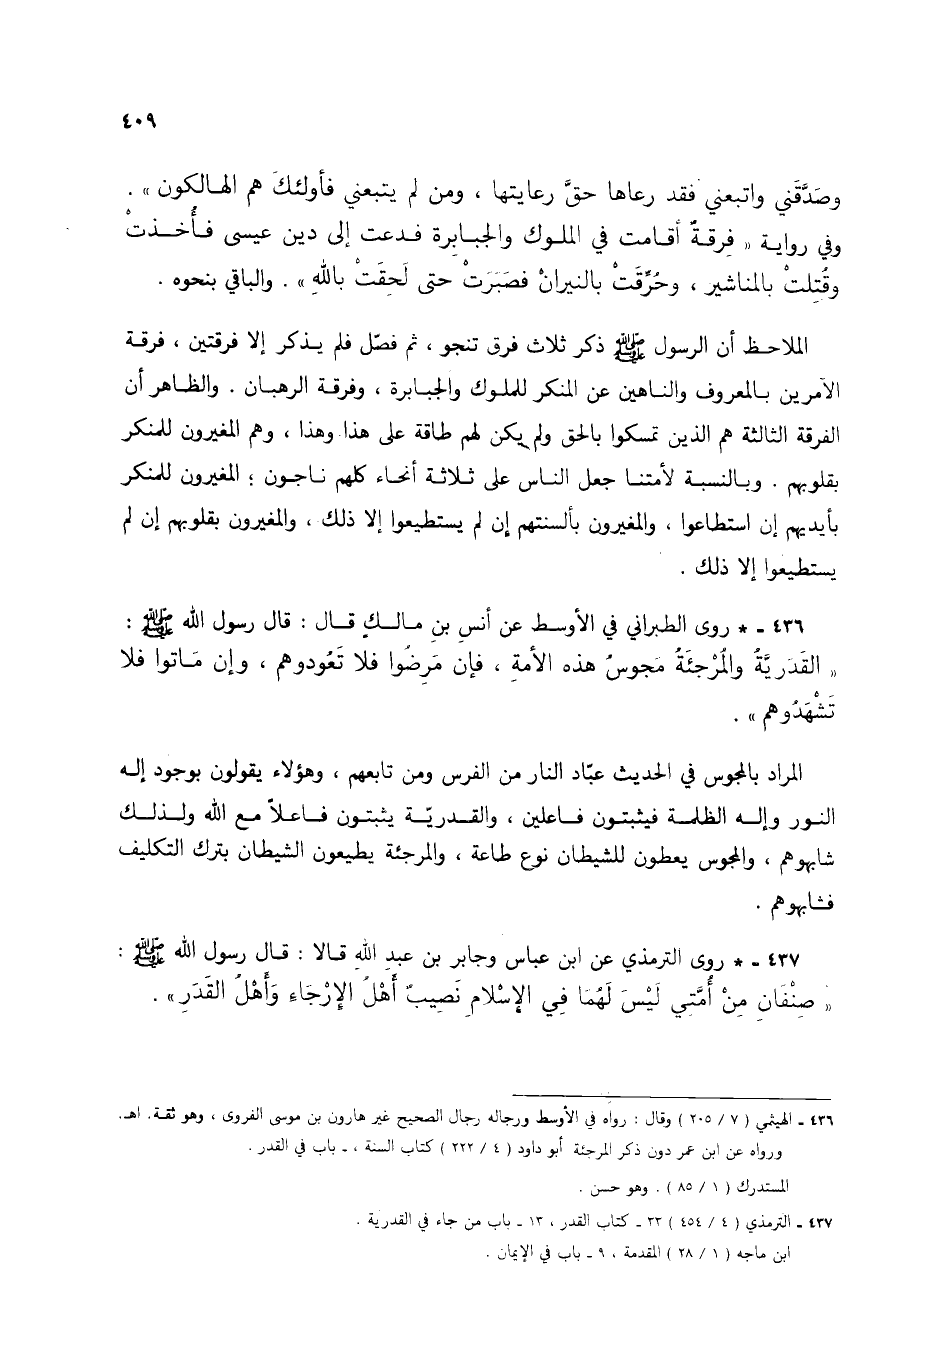 ٤٠٩
وصَدَّقَني واتبعني فقد رعاها حقَّ رعايتها ، ومن لم يتبعني فأولئكَ هم الهـالكون » .
وفي رواية « فرقةٌ أقـامت في الملـوك والجبـابرة فـدعت إلى دين عيسى فـأُخـذتْ
وقُتِلتْ بالمناشير ، وحُرِّقَتْ بالنيرانْ فصَبَرَتْ حتى لَحِقَتْ بالله » . والباقي بنحوه .
الملاحـظ أن الرسول ﷺ ذكر ثلاث فرق تنجو ، ثم فصّل فلم يـذكر إلا فرقتين ، فرقـة
الآمرين بـالمعروف والنـاهين عن المنكر للملوك والجبابرة ، وفرقـة الرهبـان . والظـاهر أن
الفرقة الثالثة هم الذين تمسكوا بالحق ولم يكن لهم طاقة على هذا وهذا ، وهم المغيرون للمنكر
بقلوبهم . وبـالنسبـة لأمتنـا جعل النـاس على ثـلاثـة أنحـاء كلهم نـاجـون ؛ المغيرون للمنكر
بأيديهم إن استطاعوا ، والمغيرون بألسنتهم إن لم يستطيعوا إلا ذلك ، والمغيرون بقلوبهم إن لم
يستطيعوا إلا ذلك .
٤٣٦ - * روى الطبراني في الأوسـط عن أنسِ بنِ مـالـكٍ قـال : قال رسول الله ﷺ :
« القَدَرِيَّةُ والْمُرْجِئَةُ مَجوسُ هذه الأمةِ ، فإن مَرِضُوا فلا تَعُودوهم ، وإن مَـاتوا فلا
تَشْهَدُوهم » .
المراد بالمجوس في الحديث عبّاد النار من الفرس ومن تابعهم ، وهؤلاء يقولون بوجود إلـه
النـور وإلـه الظلمـة فيثبتـون فـاعلين ، والقـدريّـة يثبتـون فـاعـلاً مـع الله ولـذلـك
شابهوهم ، والمجوس يعطون للشيطان نوع طاعة ، والمرجئة يطيعون الشيطان بترك التكليف
فشابهوهم .
٤٣٧ - * روى الترمذي عن ابن عباس وجابر بن عبد اللهِ قـالا : قـال رسول الله ﷺ :
« صِنْفَانِ مِنْ أُمَّتِي لَيْسَ لَهُمَا فِي الإِسْلامِ نَصِيبٌ أَهْلُ الإِرْجَاءِ وَأَهْلُ القَدَرِ» .
٤٣٦ - الهيثمي ( ٧ / ٢٠٥ ) وقال : رواه في الأوسط ورجاله رجال الصحيح غير هارون بن موسى الفروى ، وهو ثقـة . اهـ .
ورواه عن ابن عمر دون ذكر المرجئة أبو داود ( ٤ / ٢٢٢ ) كتاب السنة ، - باب في القدر .
المستدرك ( ١ / ٨٥ ) . وهو حسن .
٤٣٧ - الترمذي ( ٤ / ٤٥٤ ) ٣٣ - كتاب القدر ، ١٣ - باب من جاء في القدرية .
ابن ماجه ( ١ / ٢٨ ) المقدمة ، ٩ - باب في الإيمان .